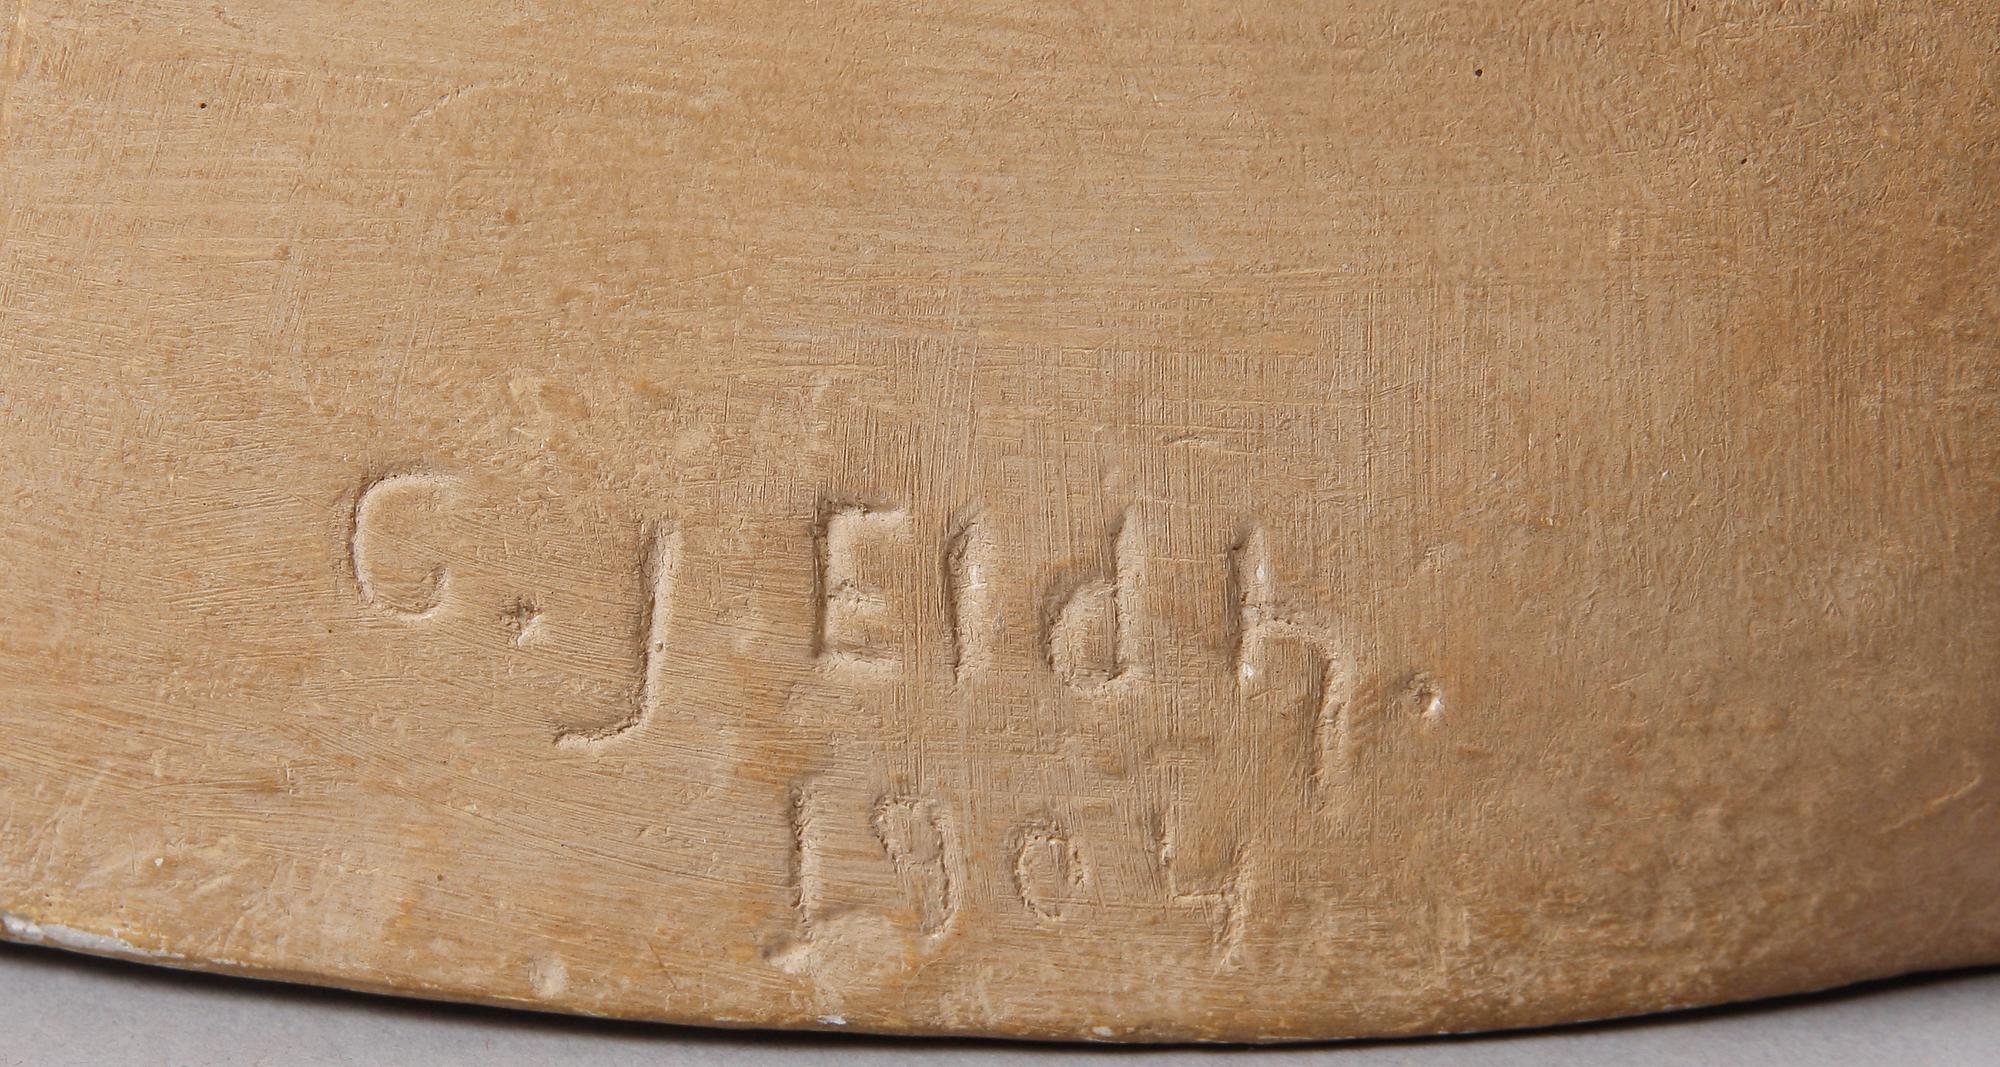 C. J Eldh.
1904